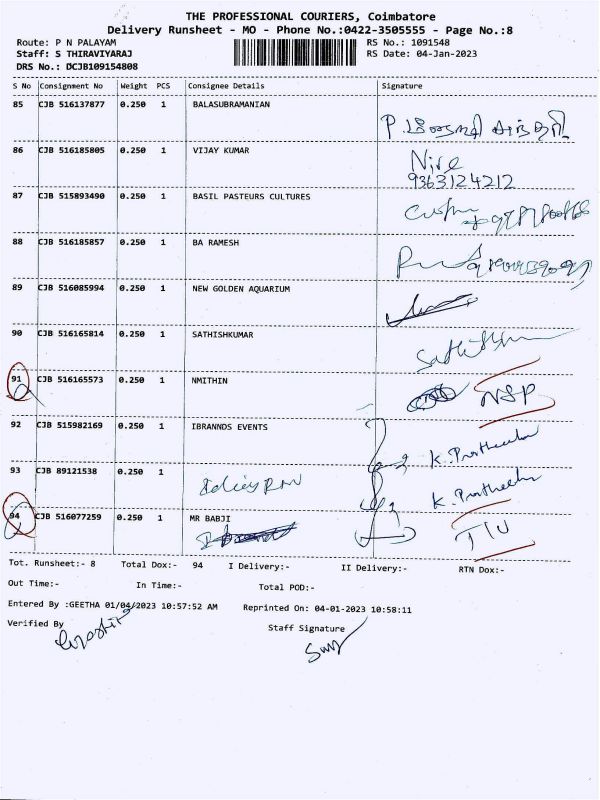 THE PROFESSIONAL COURIERS, Coimbatore
Delivery Runsheet - MO - Phone No.:0422-3505555 - Page No.:8
Route: P N PALAYAM RS No.: 1091548
Staff: S THIRAVIYARAJ RS Date: 04-Jan-2023
DRS No.: DCJB109154808
S No Consignment No Weight PCS Consignee Details Signature
85 CJB 516137877 0.250 1 BALASUBRAMANIAN
86 CJB 516185805 0.250 1 VIJAY KUMAR
9363124212
87 CJB 515893490 0.250 1 BASIL PASTEURS CULTURES
88 CJB 516185857 0.250 1 BA RAMESH
89 CJB 516085994 0.250 1 NEW GOLDEN AQUARIUM
90 CJB 516165814 0.250 1 SATHISHKUMAR
91 CJB 516165573 0.250 1 NMITHIN NSP
92 CJB 515982169 0.250 1 IBRANNDS EVENTS
93 CJB 89121538 0.250 1
94 CJB 516077259 0.250 1 MR BABJI
Tot. Runsheet:- 8 Total Dox:- 94 I Delivery:- II Delivery:- RTN Dox:-
Out Time:- In Time:- Total POD:-
Entered By :GEETHA 01/04/2023 10:57:52 AM Reprinted On: 04-01-2023 10:58:11
Verified By Staff Signature